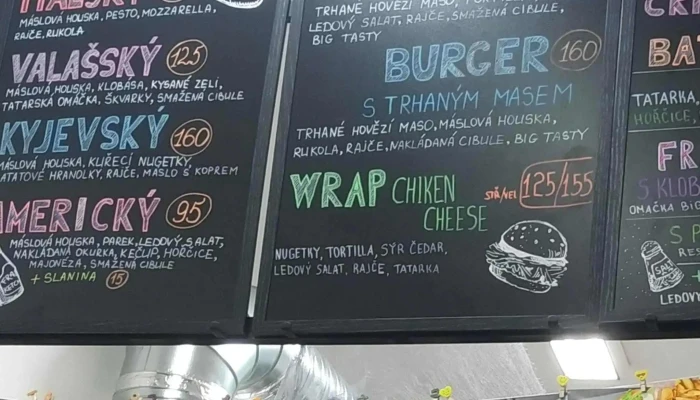 MÁSLOVÁ HOUSKA, PESTO, MOZZARELLA,
RAJČE, RUKOLA
VALAŠSKÝ 125
MÁSLOVÁ HOUSKA, KLOBÁSA, KYSANÉ ZELÍ,
TATARSKÁ OMÁČKA, ŠKVARKY, SMAŽENÁ CIBULE
KYJEVSKÝ 160
MÁSLOVÁ HOUSKA, KUŘECÍ NUGETKY,
BATATOVÉ HRANOLKY, RAJČE, MÁSLO S KOPREM
AMERICKÝ 95
MÁSLOVÁ HOUSKA, PAREK, LEDOVÝ SALÁT,
NAKLÁDANÁ OKURKA, KEČUP, HOŘČICE,
MAJONÉZA, SMAŽENÁ CIBULE
+ SLANINA 15
TRHANÉ HOVĚZÍ MASO,
LEDOVÝ SALÁT, RAJČE, SMAŽENÁ CIBULE,
BIG TASTY
BURGER 160
S TRHANÝM MASEM
TRHANÉ HOVĚZÍ MASO, MÁSLOVÁ HOUSKA,
RUKOLA, RAJČE, NAKLÁDANÁ CIBULE, BIG TASTY
WRAP CHIKEN STŘ/VEL 125/155
CHEESE
NUGETKY, TORTILLA, SÝR ČEDAR,
LEDOVÝ SALÁT, RAJČE, TATARKA
BA
TATARKA,
HOŘČICE,
FR
S KLOB
OMAČKA BIG
S P
RES
+
SALT
LEDOV